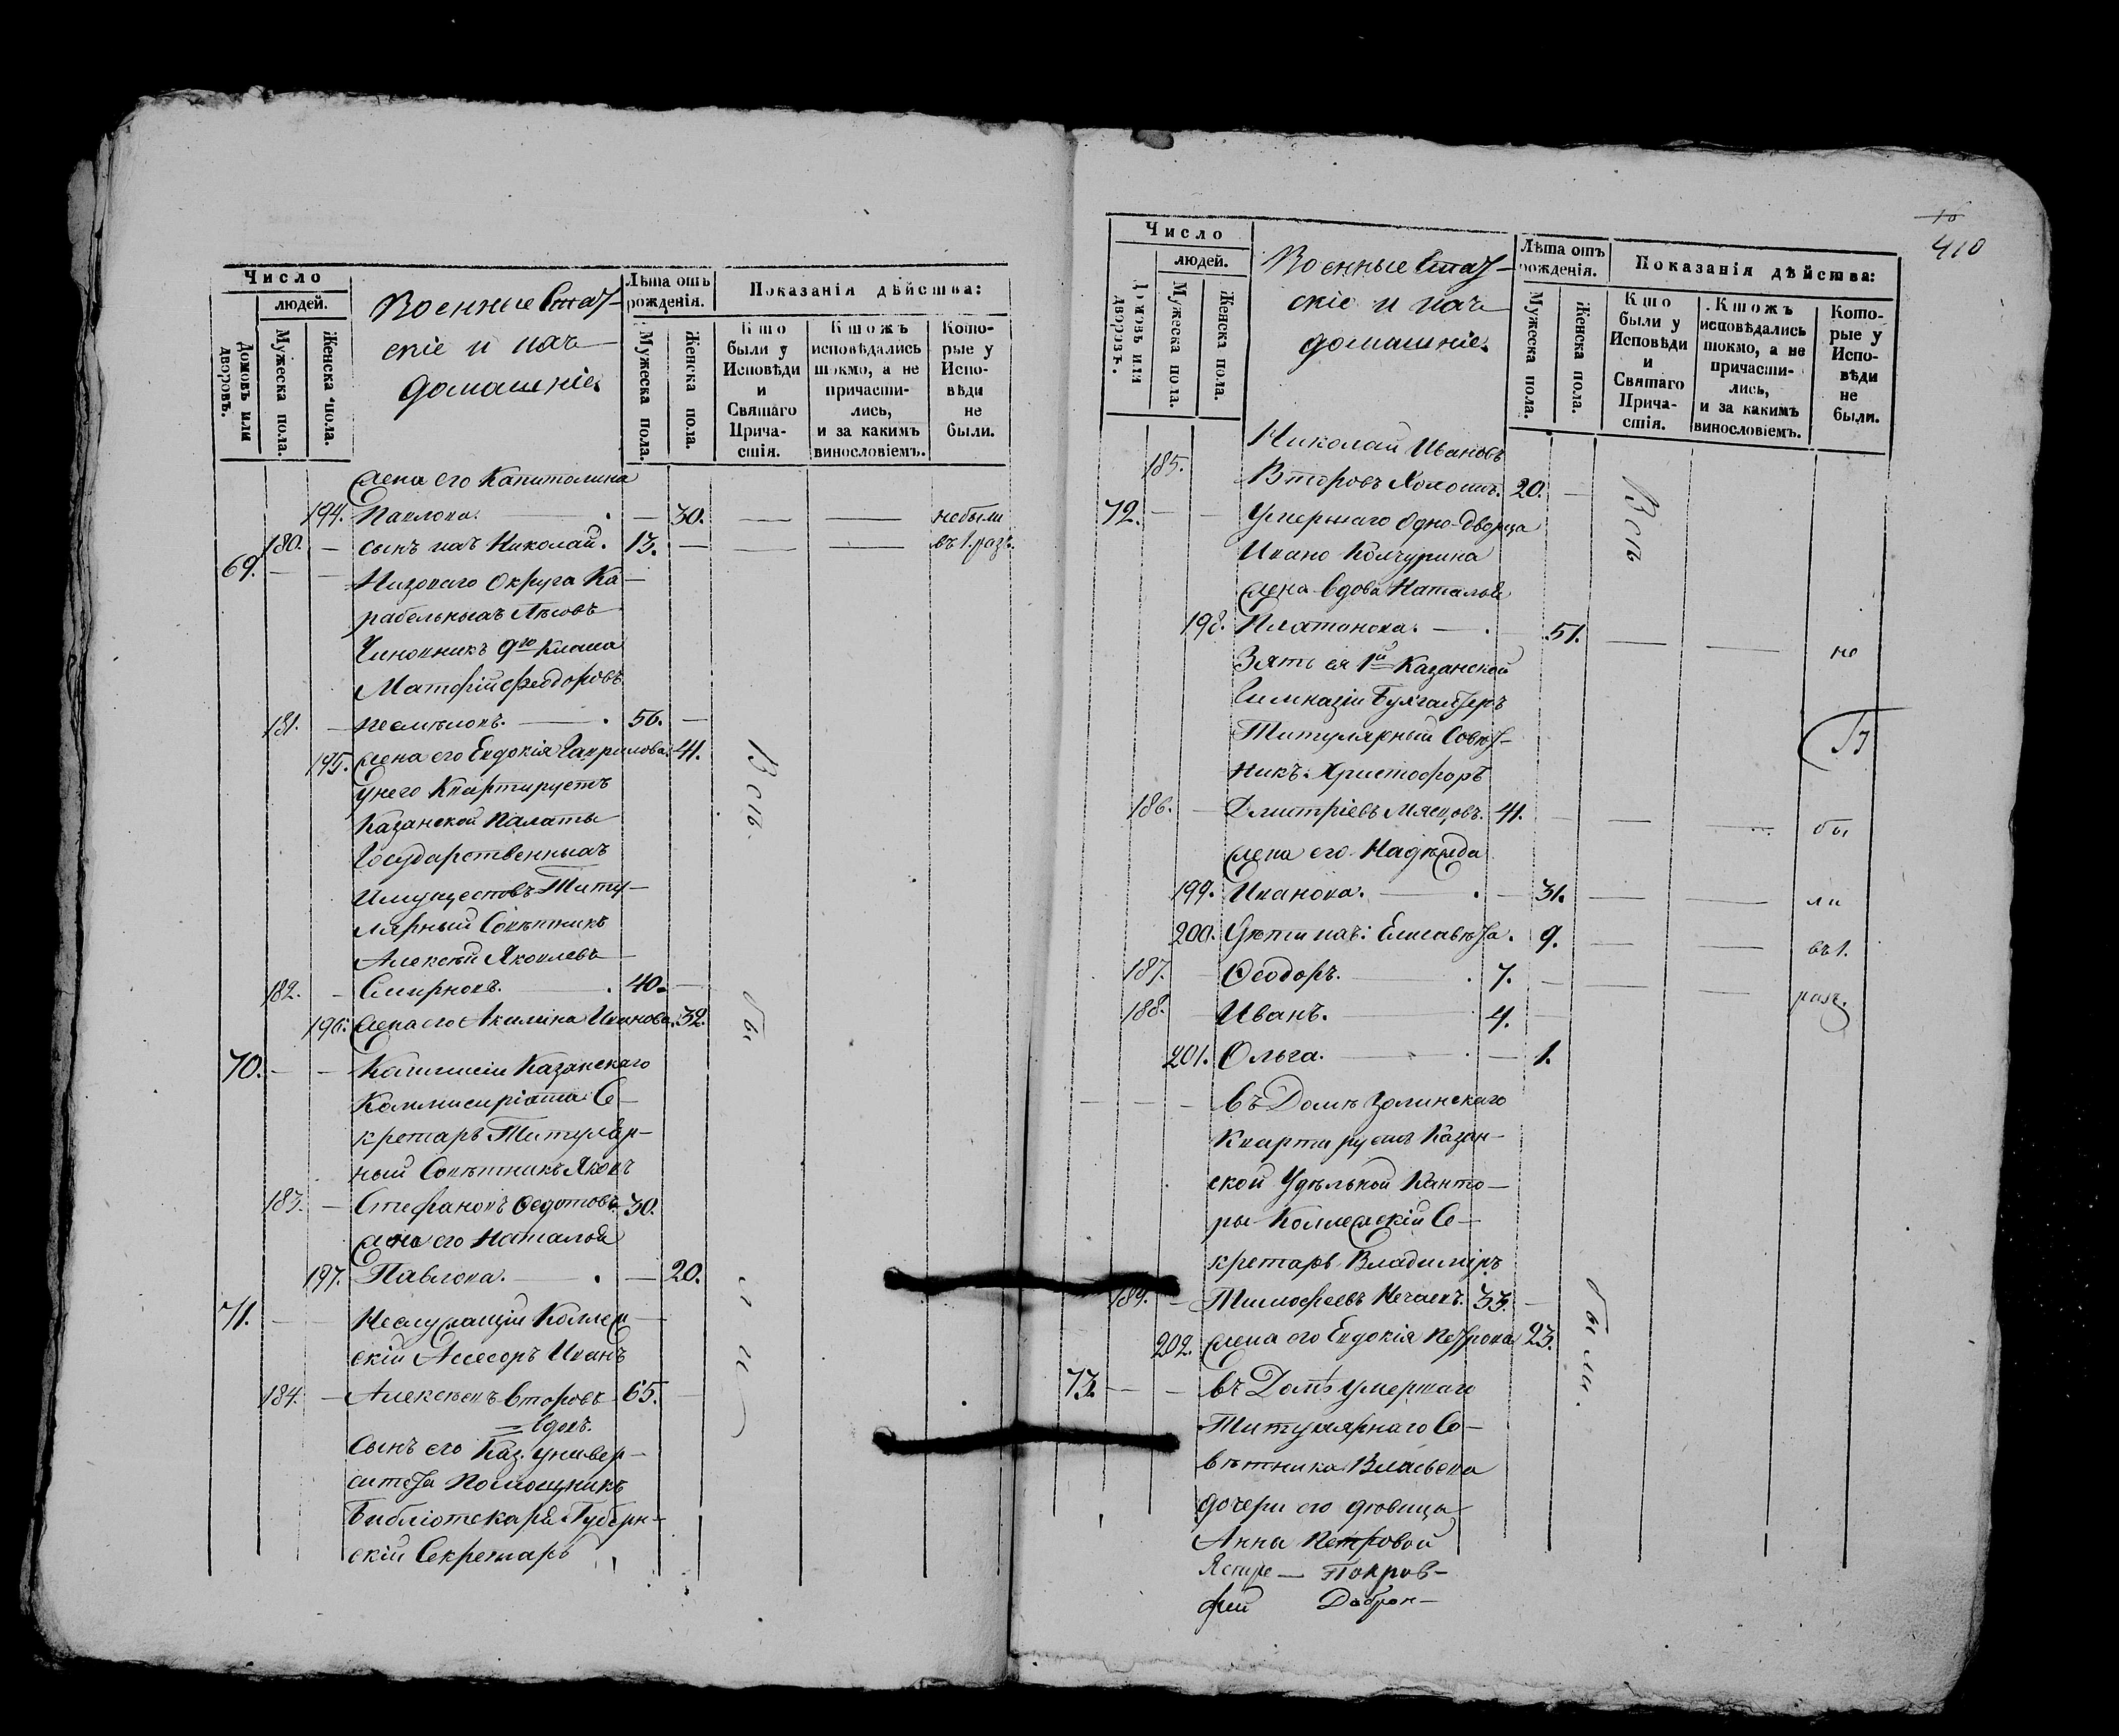 Число
людей.
Домовъ или дворовъ.
Мужеска пола.
Женска пола.
Военные Стат-
скіе и ихъ
домашніе
Лѣта отъ рожденія.
Мужеска пола.
Женска пола.
Показанія дѣйства:
Кто были у Исповѣди и Святаго Причастія.
Ктожъ исповѣдались токмо, а не причастились, и за какимъ винословіемъ.
Которые у Исповѣди не были.
Жена его Капитолина
194. Павлова. — 30. — — небыли
180. — сынъ ихъ Николай. 13. — — — въ 1. разъ.
69. — — Низоваго Округа Ка-
рабельныхъ Лѣсовъ
Чиновникъ 9го Класса
Матфій Феодоровъ
181. — Несмѣловъ. — 56. —
195. Жена его Евдокія Гаврилова. 41.
Унего Квартируетъ
Казанской Палаты
Государственныхъ
Имуществъ Титу-
лярный Совѣтникъ
Алексѣй Яковлевъ
182. — Смирновъ. 40. —
196. Жена его Акилина Иванова. 32.
70. — — Комиссіи Казанскаго
Коммисиріата Се-
кретарь Титуляр-
ный Совѣтникъ Яковъ
183. — Стефановъ Федотовъ 30.
Жена его Наталья
197. Павлова. — 20.
71. — — Неслужащій Коллеж-
скій Ассесоръ Иванъ
184. — Алексѣевъ Второвъ 65. —
= вдовъ.
Сынъ его Каз. Универ-
ситета Помощникъ
Библіотекаря Губерн-
скій Секретарь
Всѣ
бы
ли
16
410
Число
людей.
Домовъ или дворовъ.
Мужеска пола.
Женска пола.
Военные Стат-
скіе и ихъ
домашніе.
Лѣта отъ рожденія.
Мужеска пола.
Женска пола.
Показанія дѣйства:
Кто были у Исповѣди и Святаго Причастія.
Ктожъ исповѣдались токмо, а не причастились, и за какимъ винословіемъ.
Которые у Исповѣди не были.
Николай Ивановъ
185. Второвъ Холостъ. 20. —
72. — — Умершаго Одно-дворца
Ивано Колчурина
Жена вдова Наталья
198. Платонова. — 51. — — не
Зять ея 1й Казанской
Гимназіи Бухгалтеръ
Титулярный Совѣт-
никъ: Христофоръ
186. — Дмитріевъ Мясцовъ. 41. — — — бы
Жена его Надѣжда
199. Иванова. — 31. — — ли
200. Дѣти ихъ: Елисавета. 9. — — въ 1.
187. — Ѳеодоръ. 7. — — — разъ.
188. Иванъ. 4. —
201. Ольга. — 1.
— — — Въ Домѣ Золинскаго
Квартируетъ Казан-
ской Удѣльной Канто-
ры Коллежскій Се-
кретарь Владимиръ
189. — Тимофеевъ Нечаевъ. 33. —
202. Жена его Евдокія Петрова 23.
73. — — въ Домѣ умершаго
Титулярнаго Со-
вѣтника Власьева
дочери его дѣвицы
Анны Петровой
Всѣ
были.